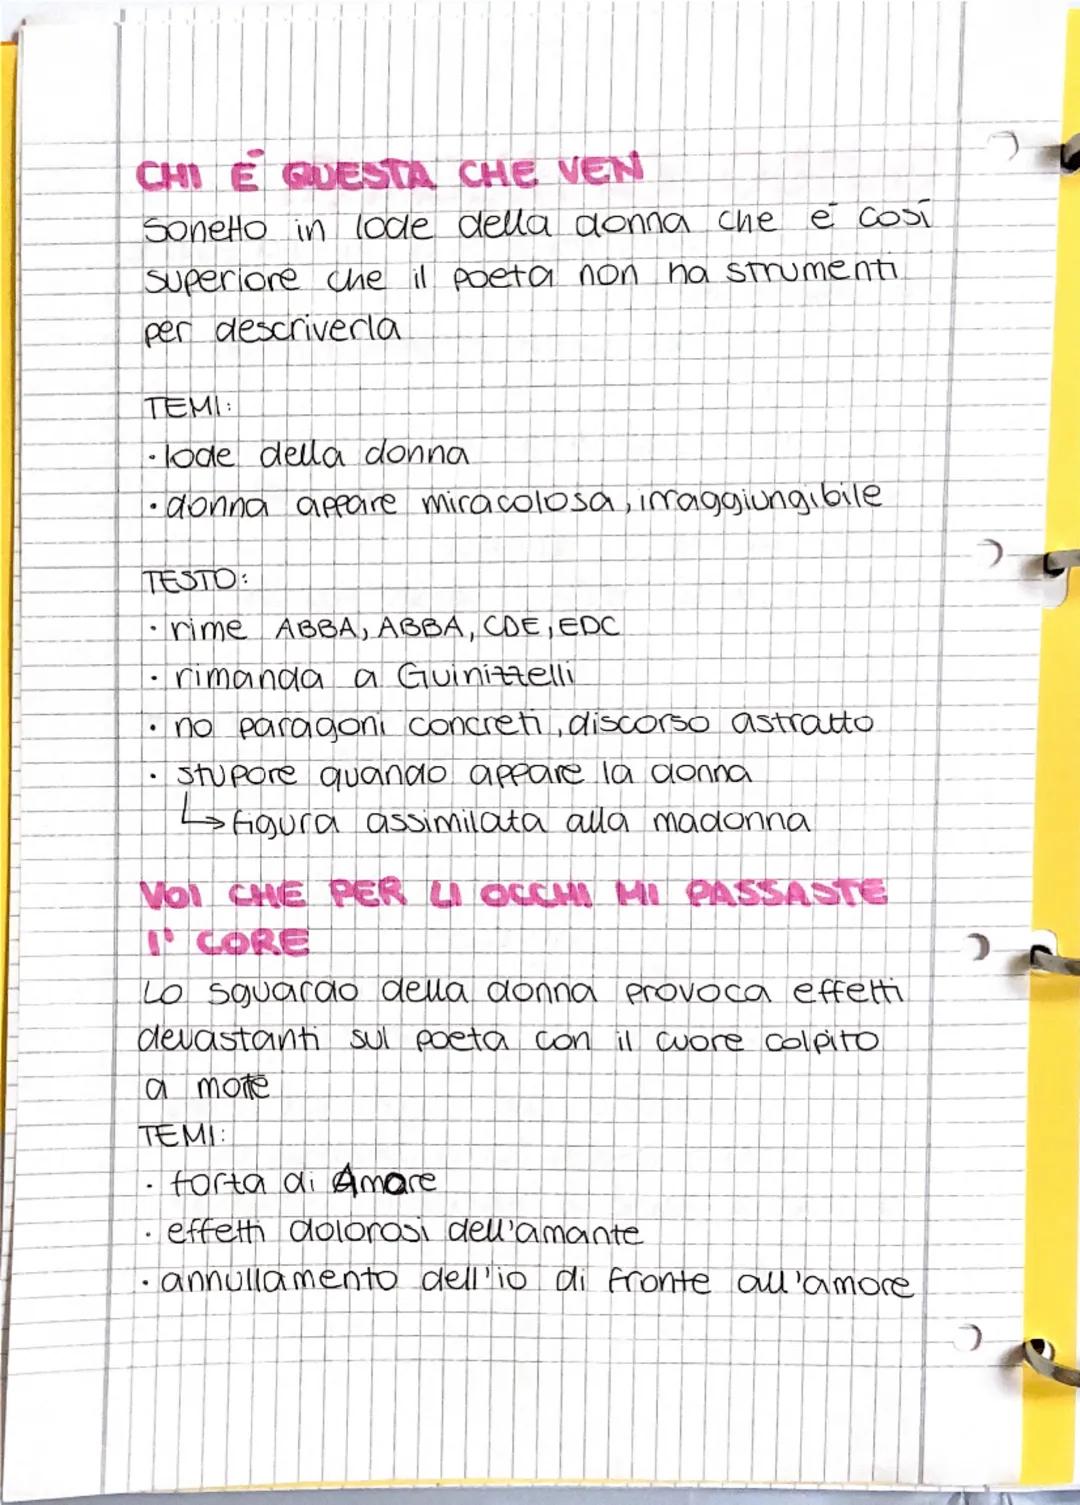 CHI É QUESTA CHE VEN
Sonetto in lode della donna che é così
superiore che il poeta non ha strumenti
per descriverla
TEMI:
· lode della donna
· donna appare miracolosa, irraggiungibile
TESTO:
· rime ABBA, ABBA, CDE, EDC
· rimanda a Guinizzelli
· no paragoni concreti, discorso astratto
· stupore quando appare la donna
↳ figura assimilata alla madonna
VOI CHE PER LI OCCHI MI PASSASTE
l' CORE
Lo sguardo della donna provoca effetti
devastanti sul poeta con il cuore colpito
a morte
TEMI:
· forza di Amore
· effetti dolorosi dell'amante
· annullamento dell'io di fronte all'amore